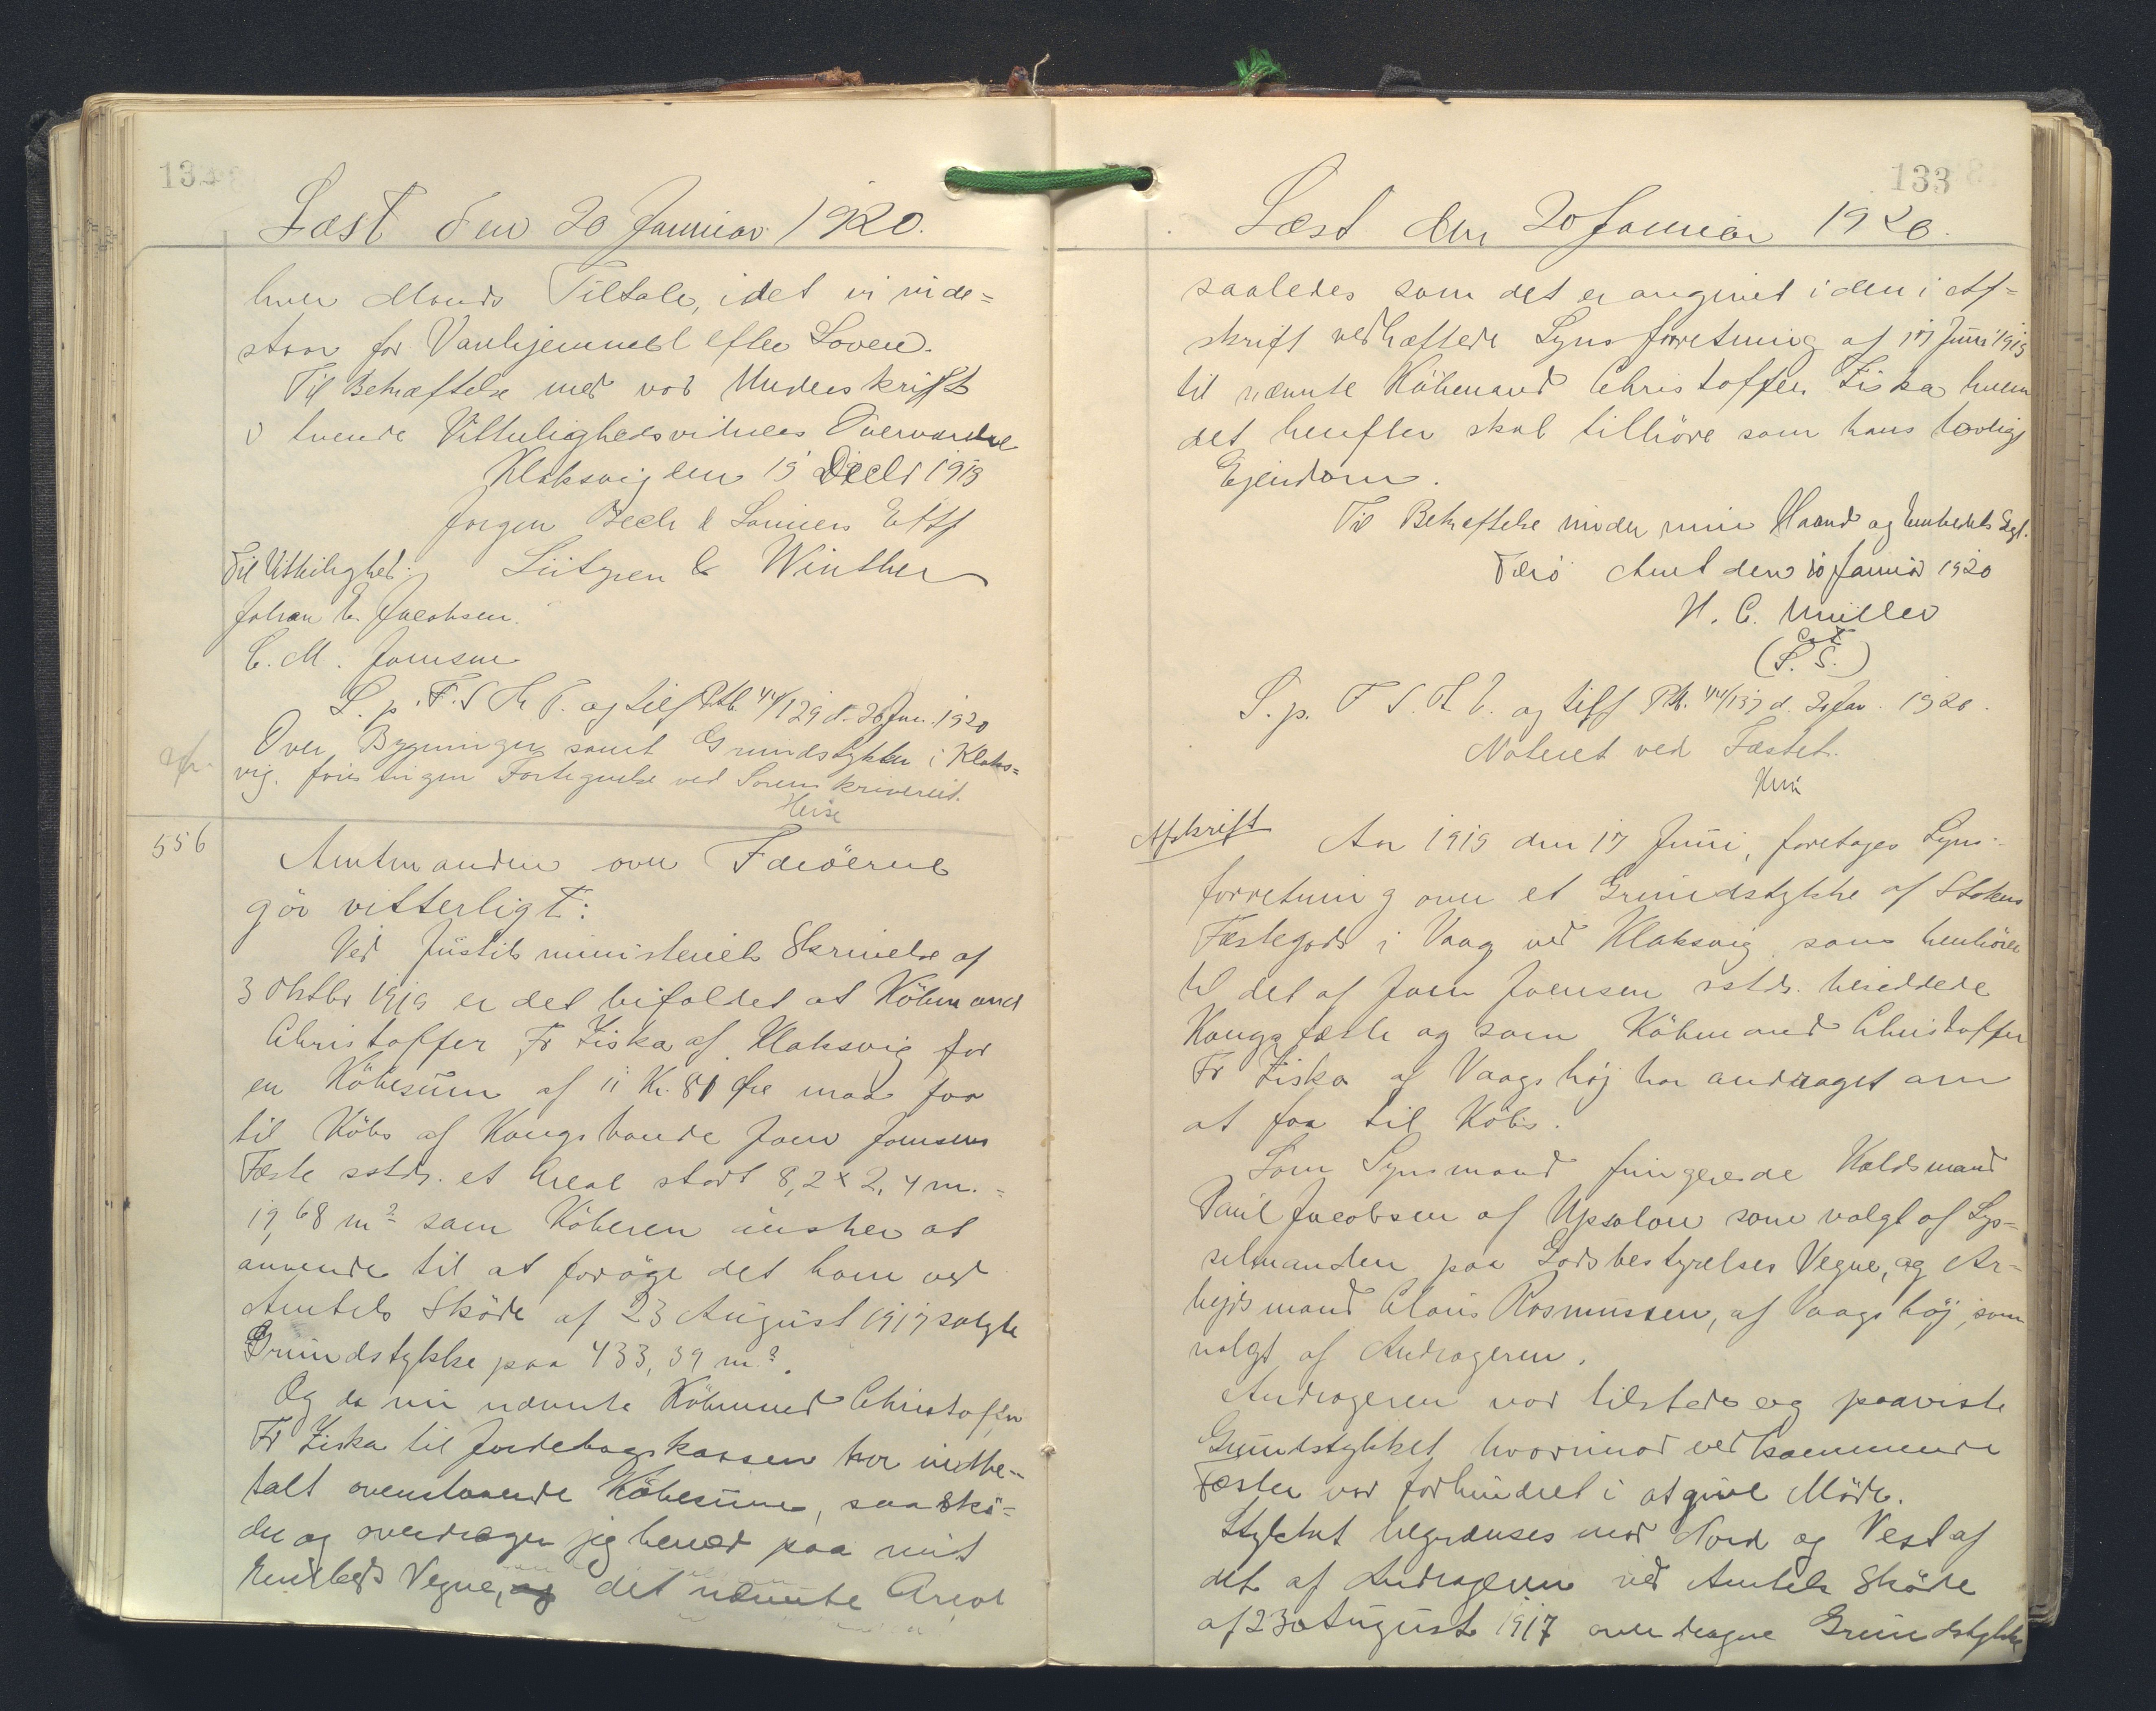 Læst den 20 Januar 1920.
hver Mands Tiltale, idet vi inde=
staar for Vanhjemmel efter Loven.
Til Bekræftelse med vor Underskrift
i tvende Vitterlighedsvidners Overværelse
Klaksvig den 15 Decbr 1919
Jørgen Bech & Sønners Eftf
Til Vitterlighed: Lützen & Winther
Johan E. Jacobsen.
C. M. Joensen
L. p. F. S Th P. og tilf Ptb 44/129 d. 20 Jan. 1920
Over Bygninger samt Grundstykker i Klaks=
vig. findes ingen Fortegnelse ved Sorenskriveriet.
Heise
556
Amtmanden over Færöerne
gör vitterligt:
Ved Justitsministeriets Skrivelse af
3 Oktbr 1919 er det bifaldet at Köbmand
Christoffer Fr Ziska af Klaksvig for
en Köbesum af 11 Kr. 81 Øre maa faa
til Köbs af Kongsbonde Joen Joensens
Fæste sstds. et Areal stort 8,2 x 2,4 m. =
19,68 m² som Köberen ønsker at
anvende til at foröge det ham ved
Amtets Sköde af 23 August 1917 solgte
Grundstykke paa 433,39 m².
Og da nu nævnte Köbmand Christoffer
Fr Ziska til Jordebogskassen har indbe=
talt ovenstaaende Köbesum, saa skö=
der og overdrager jeg herved paa mit
Embeds Vegne, og det nævnte Areal
133
Læst den 20 Januar 1920.
saaledes som det er angivet i den i Af=
skrift vedhæftede Synsforretning af 17 Juni 1919
til nævnte Köbmand Christoffer Ziska hvem
det herefter skal tilhöre som hans lovlige
Ejendom.
Til Bekræftelse under min Haand og Embedets Segl.
Færö Amt den 10 Januar 1920
H. C. Müller
(L. S.)
L. p. F S. Th. P. og tilf Ptb. 44/137 d. 20 Jan. 1920.
Noteret ved Fæstet.
Afskrift Aar 1919 den 17 Juni, foretoges Syns=
forretning over et Grundstykke af Statens
Fæstegods i Vaag ved Klaksvig som henhörer
til det af Joen Joensen sstds. besiddede
Kongsfæste og som Köbmand Christoffer
Fr Ziska af Vaagshöj har andraget om
at faa til Köbs.
Som Synsmænd fungerede Kaldsmand
Paul Jacobsen af Upsalon som valgt af Sys=
selmanden paa Godsbestyrelses Vegne, og Ar=
bejdsmand Claus Rasmussen, af Vaagshöj, som
valgt af Andrageren.
Andrageren var tilstede og paaviste
Grundstykket, hvorimod vedkommende
Fæster var forhindret i at give Möde.
Stykket begrænses mod Nord og Vest af
det af Andrageren ved Amtets Sköde
af 23 August 1917 overdragne Grundstykke